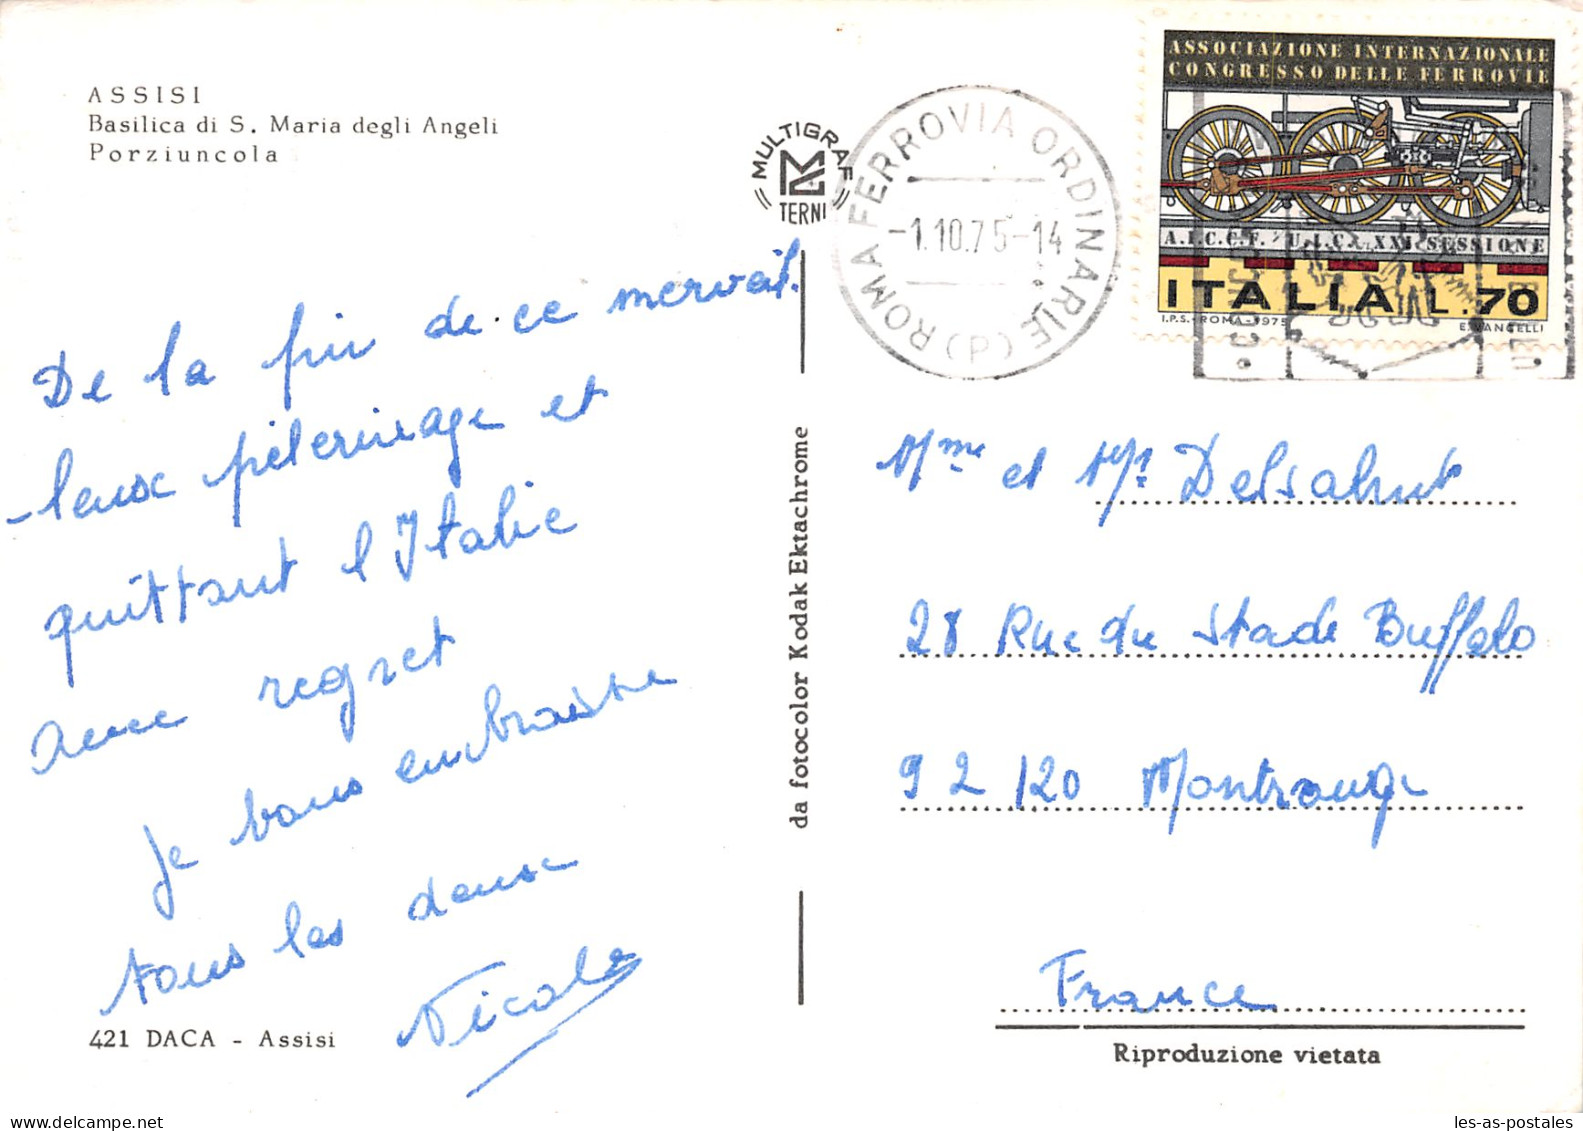 ASSISI
Basilica di S. Maria degli Angeli
Porziuncola
MULTIGRAF
TERNI
ROMA FERROVIA ORDINARIE (P)
-1.10.75-14
ASSOCIAZIONE INTERNAZIONALE
CONGRESSO DELLE FERROVIE
A.I.C.C.F. U.I.C. XXI SESSIONE
ITALIA L.70
I.P.S.-ROMA-1975 E.VANGELLI
De la fin de ce merveil
-leux pèlerinage et
quittant l'Italie
avec regret
je vous embrasse
tous les deux
Nicole
421 DACA - Assisi
da fotocolor Kodak Ektachrome
Mme et Mr Delsahut
28 Rue du Stade Buffalo
92 120 Montrouge
France
Riproduzione vietata
les-as-postales